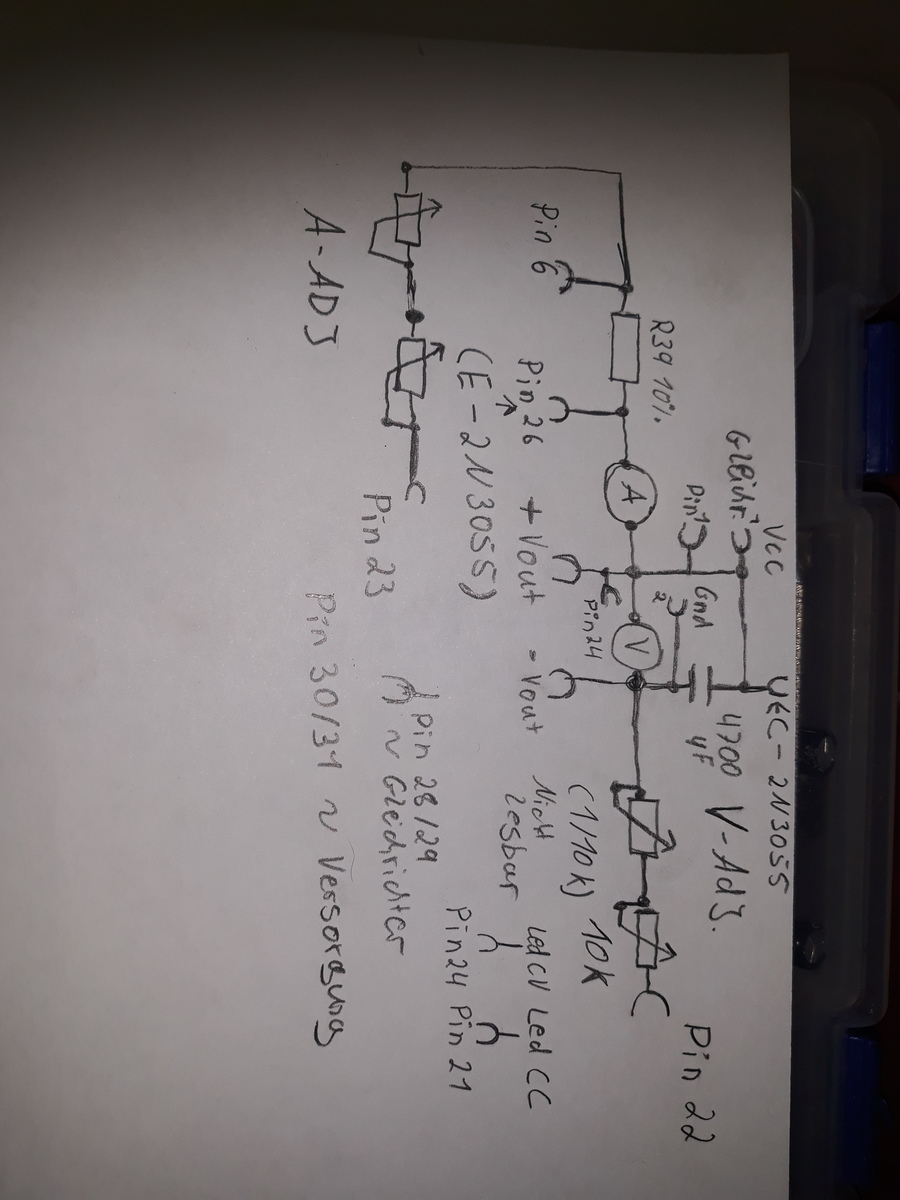 Vcc
UEC-2N3055
Gleichr.
Pin 1
Gnd
2
4700
µF
V-Adj.
Pin 22
R39 10%
A
V
Pin 24
(1/10k) 10k
Pin 6
Pin 26
+Vout
-Vout
Nicht
Lesbar
Led CV
Led CC
(E-2N3055)
Pin 24
Pin 21
Pin 23
Pin 28/29
~ Gleichrichter
A-ADJ
Pin 30/31 ~ Versorgung